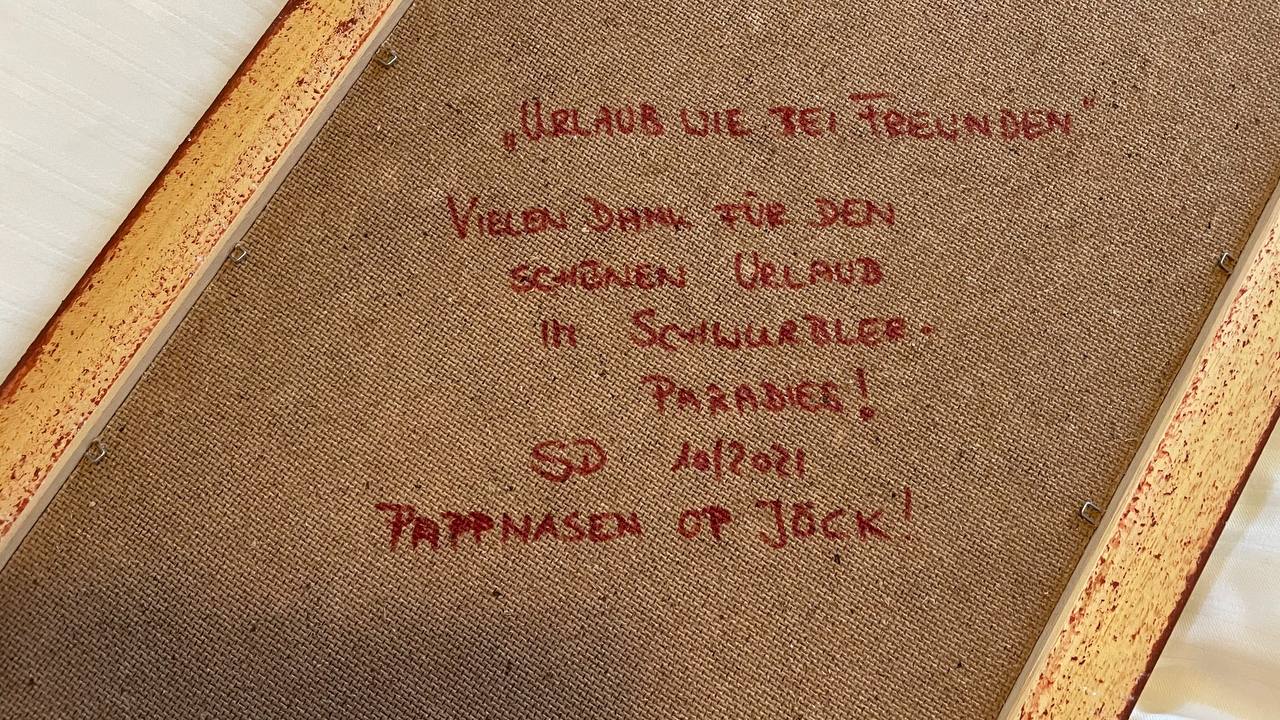 „URLAUB WIE BEI FREUNDEN"
VIELEN DANK FÜR DEN
SCHÖNEN URLAUB
IM SCHWURBLER-
PARADIES!
SD 10/2021
PAPPNASEN OP JÖCK!